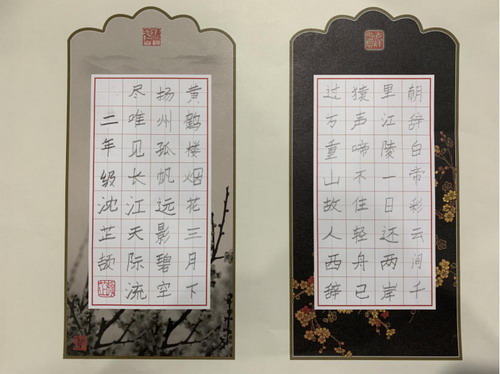 朝辞白帝彩云间千
里江陵一日还两岸
猿声啼不住轻舟已
过万重山故人西辞
黄鹤楼烟花三月下
扬州孤帆远影碧空
尽唯见长江天际流
二年级沈芷